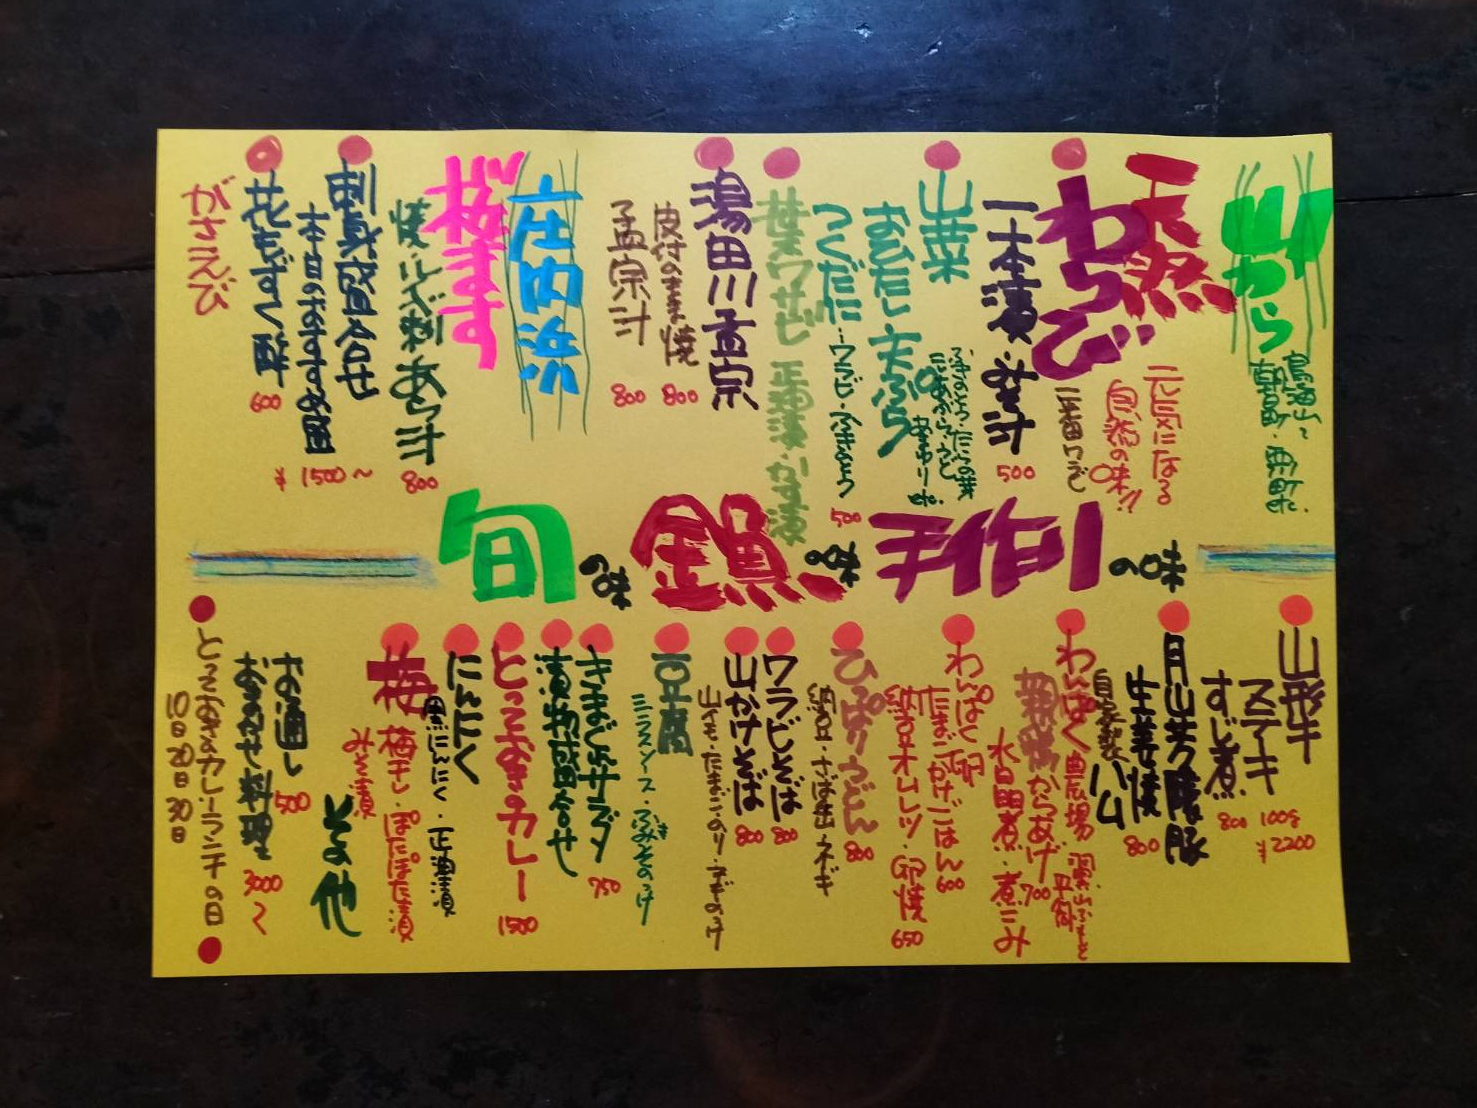 山から
鳥海山、
朝日町・西町etc.
天然
わらび
元気になる
自然の味!!
一番ワラビ
一本漬・みそ汁
500
山菜
おひたし 天ぷら
つくだに…ワラビ・ふきのとう
500
葉ワサビ 正油漬・かす漬
湯田川孟宗
皮付のまま焼
800
孟宗汁
800
庄内浜
桜ます
焼・ルイベ刺 あら汁
800
刺身盛合せ
本日のおすすめ盛
¥1500〜
花もずく酢
600
がさえび
旬の味
鍋の味
の味
山形牛
ステーキ
100g
¥2200
すじ煮
800
月山芳醸豚
生姜焼
800
自家製ハム
わんぱく農場
からあげ
700
水田煮・煮こみ
わんぱく卵
たまごかけごはん
600
納豆オムレツ・卵焼
650
ひっぱりうどん
800
納豆・さば缶・ネギ
ワラビそば
800
山かけそば
800
山イモ・たまご・のり・ネギのっけ
豆腐
きまぐれサラダ
750
漬物盛合せ
とっておきのカレー
1500
にんにく
黒にんにく・正油漬
梅
梅干し・ぽたぽた漬
みそ漬
その他
お通し
500
おまかせ料理
3000〜
とっておきのカレーランチの日
10日 20日 30日